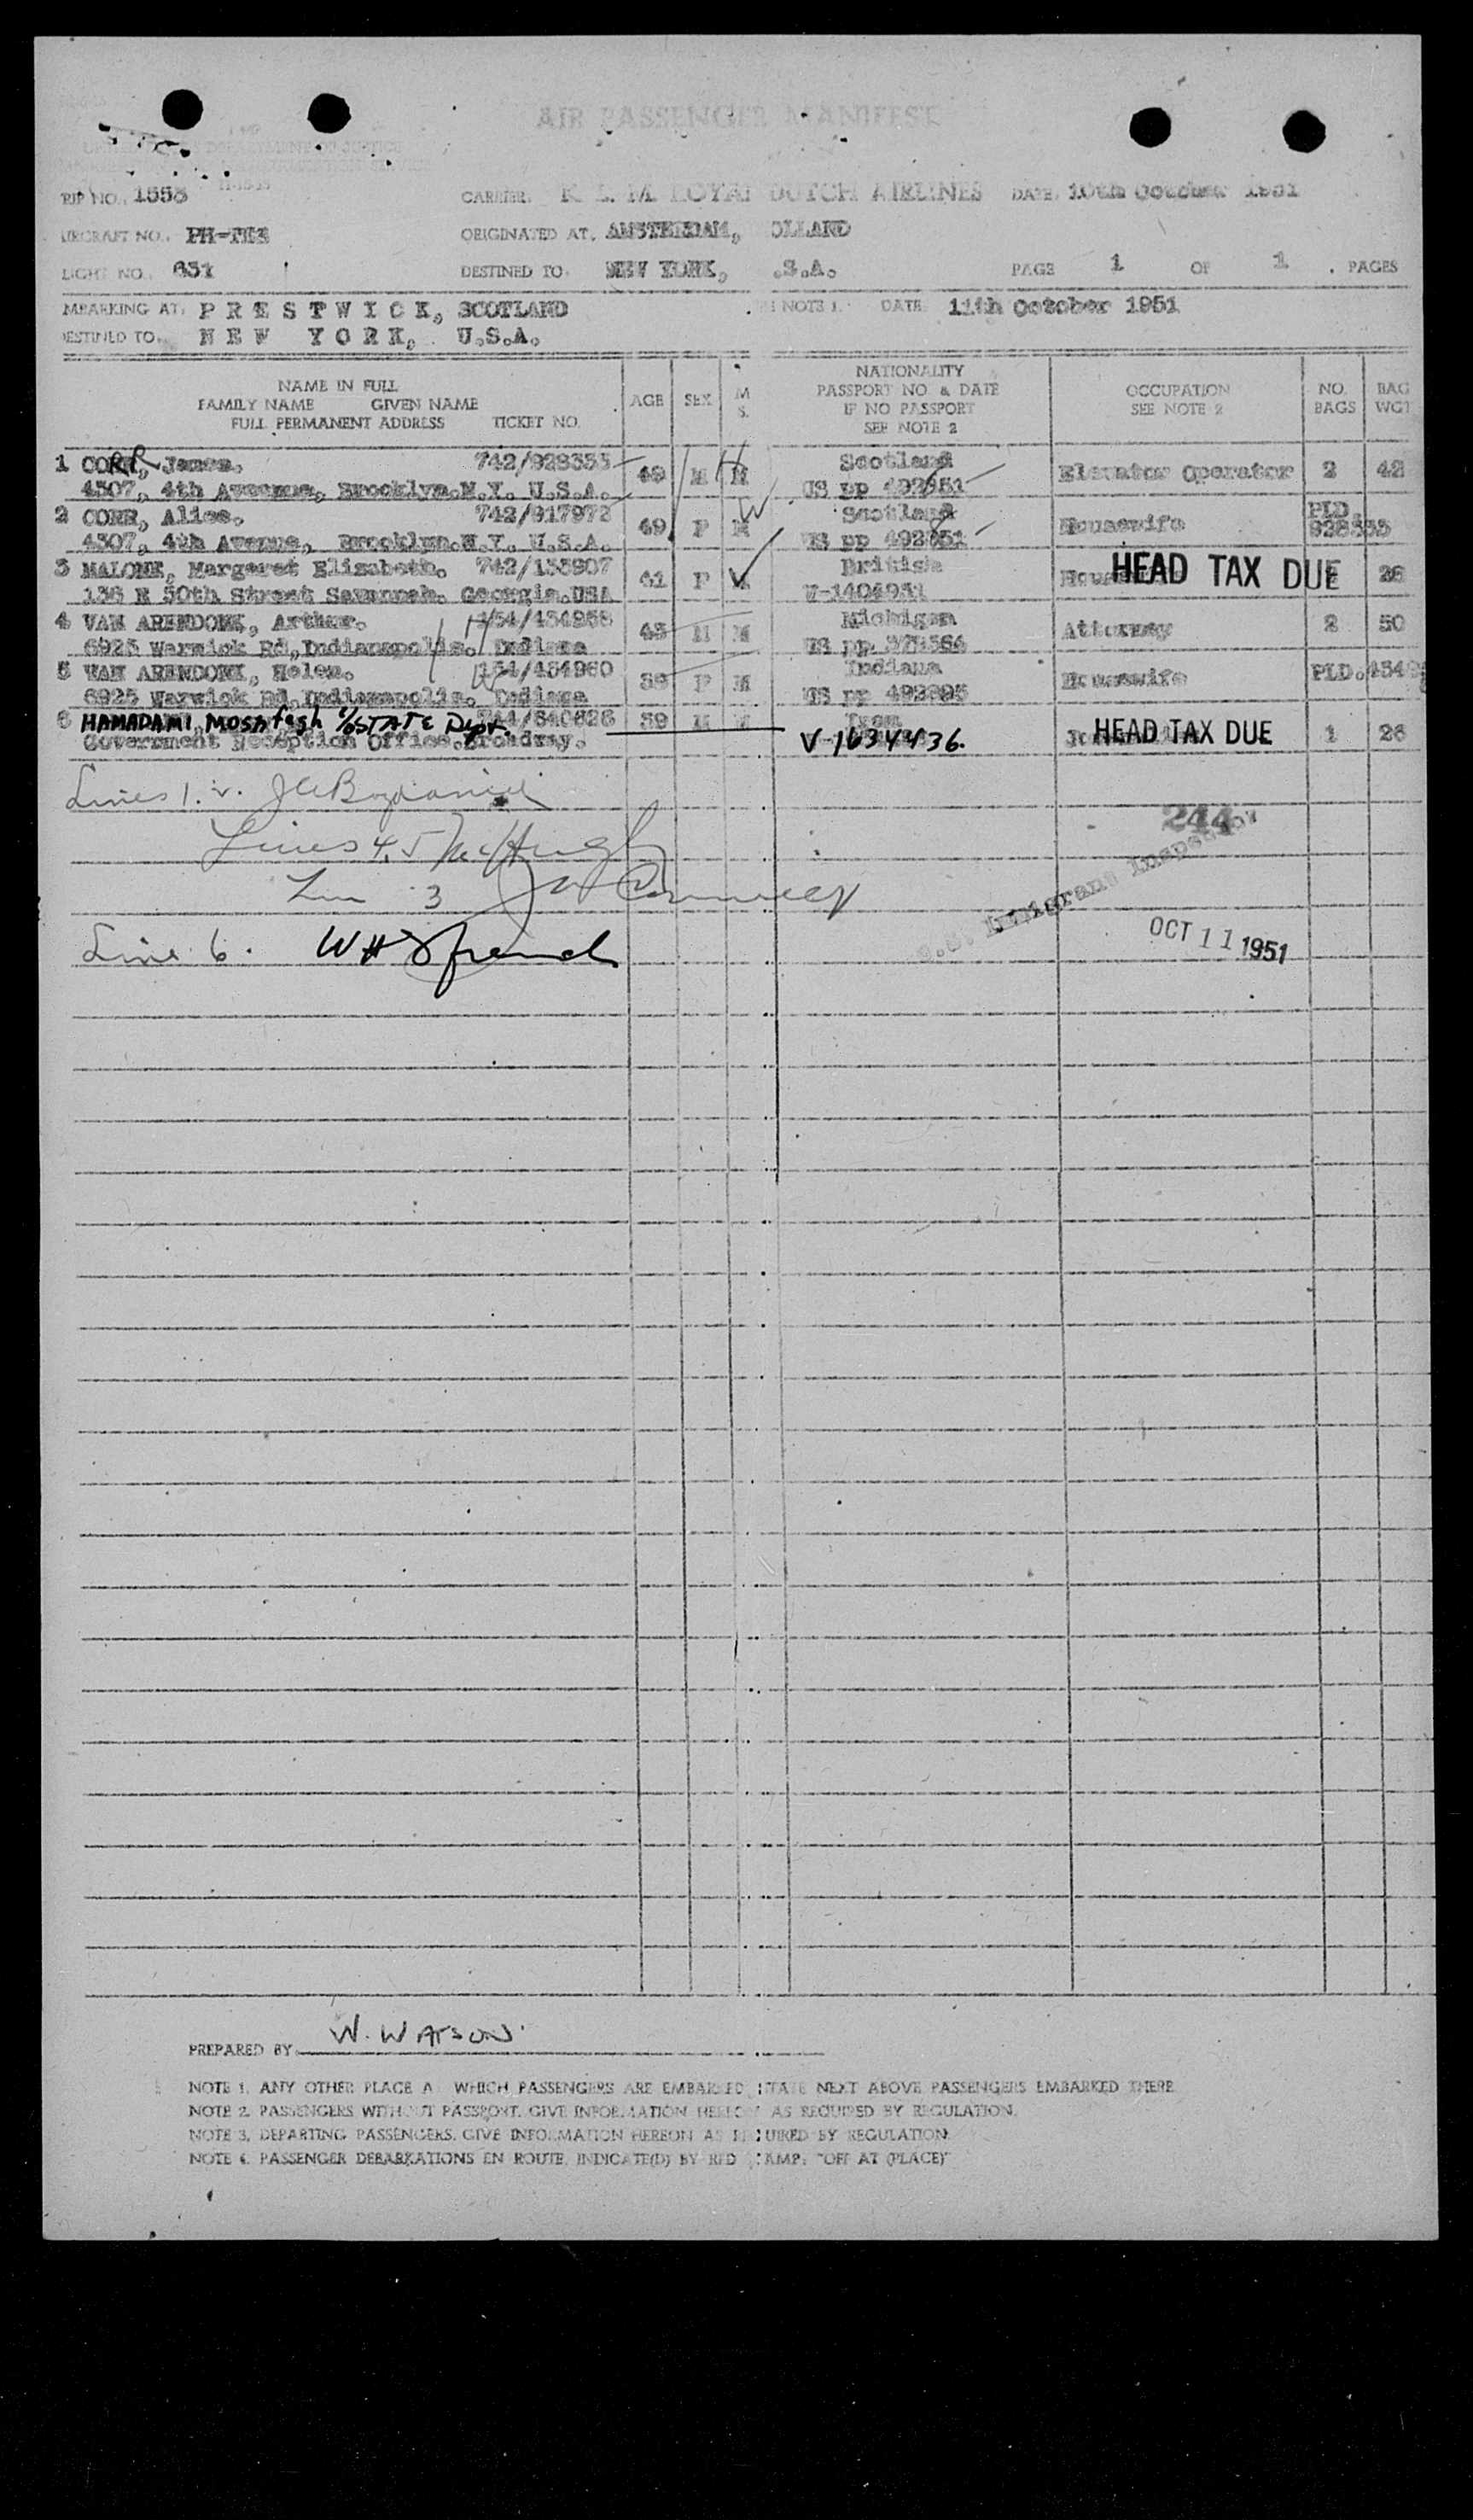 AIR PASSENGER MANIFEST
DEPARTMENT OF JUSTICE
RIP NO. 1558 CARRIER. K. L. M. ROYAL DUTCH AIRLINES DATE. 10th October 1951
AIRCRAFT NO. ORIGINATED AT. AMSTERDAM, OLLAND
LIGHT NO. 631 DESTINED TO. NEW YORK, .S.A. PAGE 1 OF 1 . PAGES
MBARKING AT. PRESTWICK, SCOTLAND NOTE 1. DATE. 11th October 1951
DESTINED TO. NEW YORK, U.S.A.
NAME IN FULL
FAMILY NAME GIVEN NAME
FULL PERMANENT ADDRESS TICKET NO.
AGE SEX M S.
NATIONALITY
PASSPORT NO. & DATE
IF NO PASSPORT
SEE NOTE 2
OCCUPATION
SEE NOTE 2
NO. BAGS
BAG WGT
1 CORR, James. 742/928335 49 M M Scotland Elevator Operator 2 42
4507, 4th Avenue, Brooklyn.N.Y. U.S.A. US pp 492851
2 CORR, Alice. 742/917972 49 F M Scotland Housewife PLD.
4507, 4th Avenue, Brooklyn.N.Y. U.S.A. US pp 492851 928335
3 MALONE, Margaret Elizabeth. 742/133907 41 F British HEAD TAX DUE 26
136 E 50th Street Savannah. Georgia.USA V-1404951
4 VAN ARENDONK, Arthur. 43 M M Michigan Attorney 2 50
6925 Warwick Rd,Indianapolis. Indiana US pp
5 VAN ARENDONK, Helen. 154/454960 F M Indiana Housewife PLD.
6925 Warwick Rd,Indianapolis. Indiana US pp 492895
6 HAMADAMI, c/o STATE Dept. 39 M M Iran HEAD TAX DUE 1 26
Government Reception Office.Broadway. V-1634436.
Lines 1. 2.
Lines 4.5 McHugh
3
Line 6. W H
244
Immigrant Inspector
OCT 11 1951
PREPARED BY W. WATSON.
NOTE 1. ANY OTHER PLACE A WHICH PASSENGERS ARE EMBARKED STATE NEXT ABOVE PASSENGERS EMBARKED THERE
NOTE 2. PASSENGERS WITHOUT PASSPORT. GIVE INFORMATION HEREON AS REQUIRED BY REGULATION.
NOTE 3. DEPARTING PASSENGERS. GIVE INFORMATION HEREON AS REQUIRED BY REGULATION.
NOTE 4. PASSENGER DEBARKATIONS EN ROUTE. INDICATE(D) BY RED AMP: "OFF AT (PLACE)"